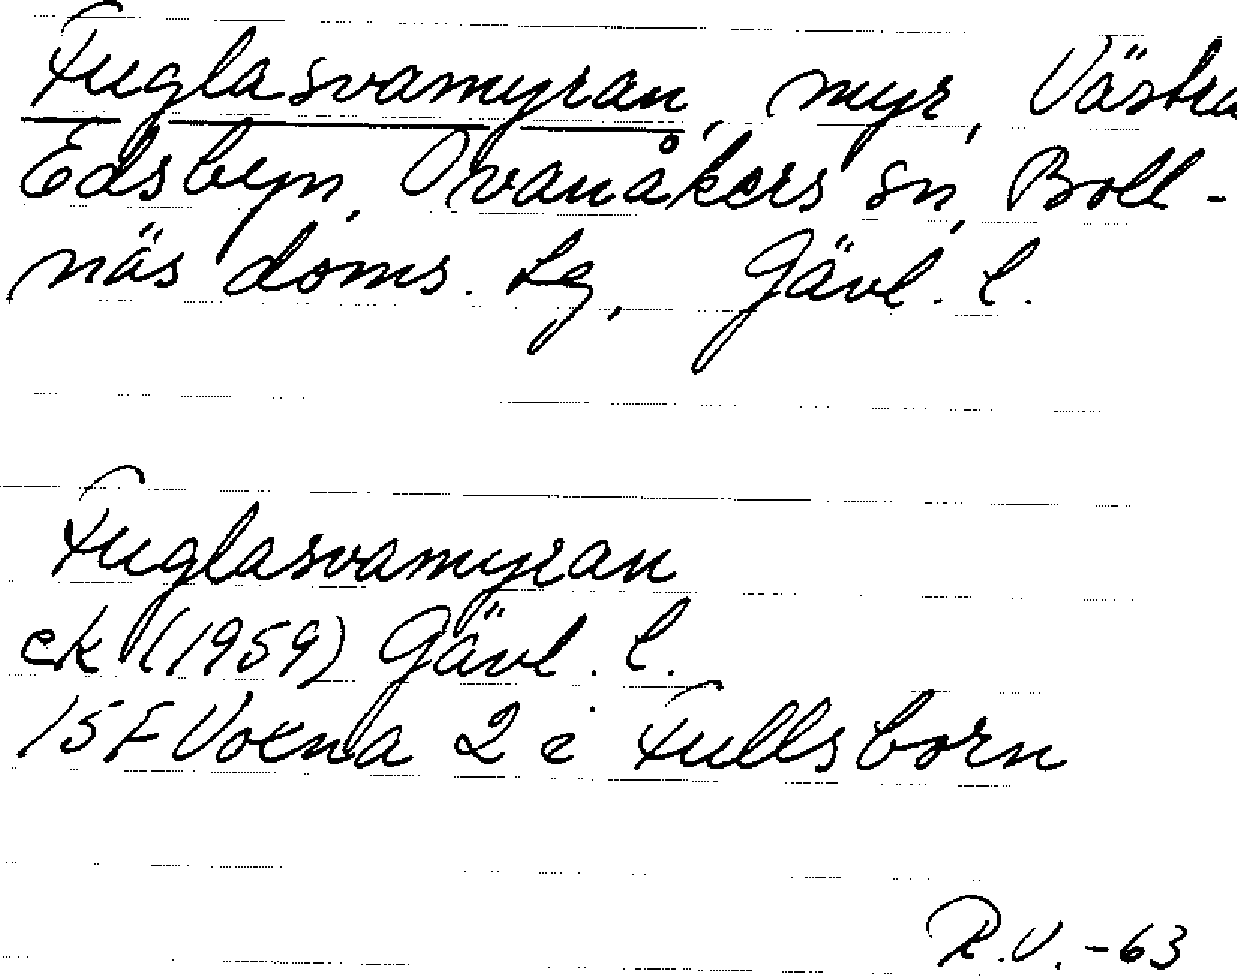 Fuglasvamyran, myr, Västra
Edsbyn, Ovanåkers sn, Boll-
näs doms. lg, Gävl. l.
Fuglasvamyran
ek (1959) Gävl. l.
15F Voxna 2 e Fullsborn
R.V. -63